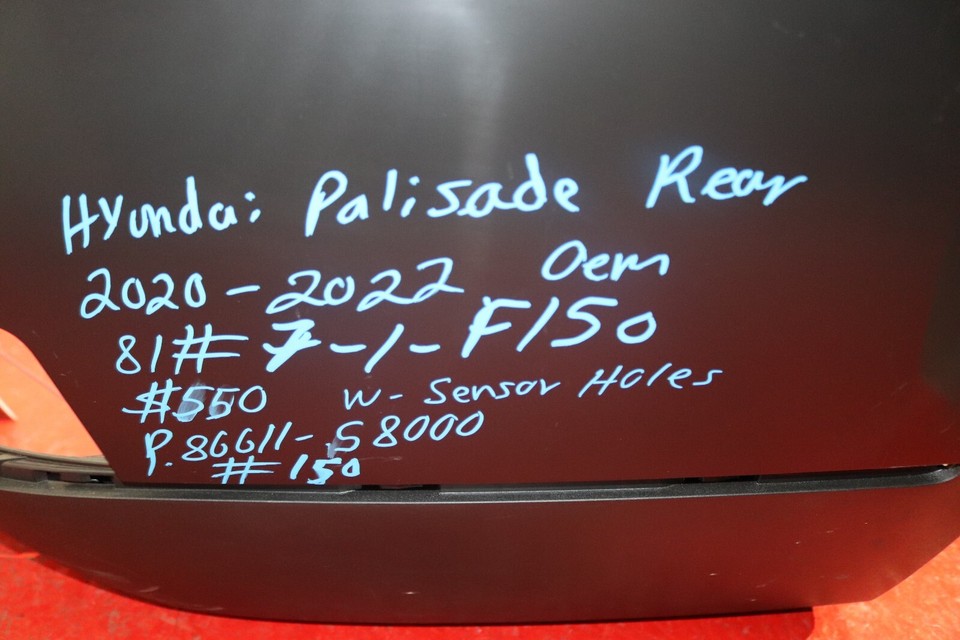 Hyundai Palisade Rear
2020-2022 Oem
81# 7-1-F150
#550 W-Sensor Holes
P.86611-S8000
#150